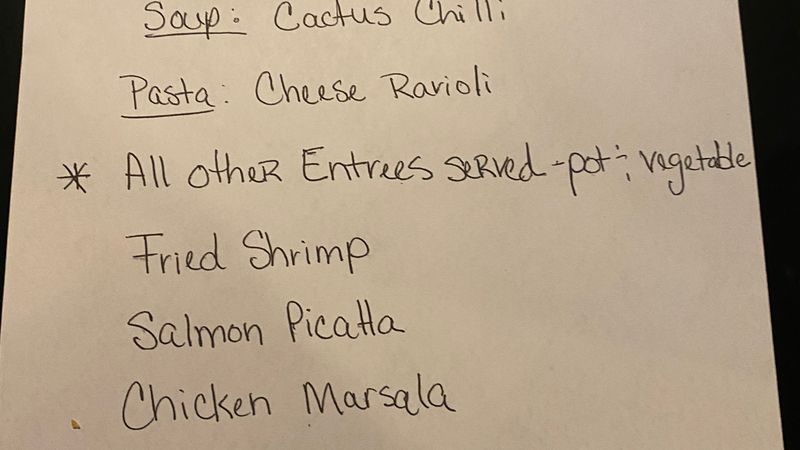 Soup: Cactus Chilli
Pasta: Cheese Ravioli
* All other Entrees served - pot ÷ vegetable
Fried Shrimp
Salmon Picatta
Chicken Marsala